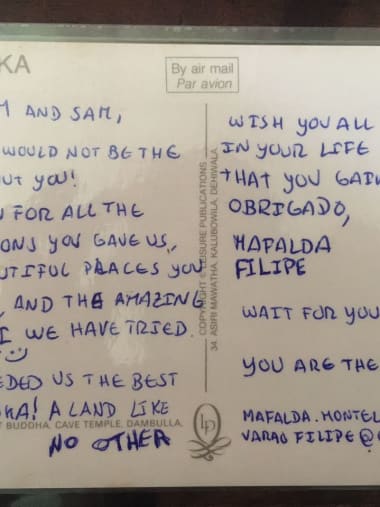 KA
By air mail
Par avion
AND SAM,
WOULD NOT BE THE
YOU!
FOR ALL THE
YOU GAVE US,
PLACES YOU
AND THE AMAZING
I WE HAVE TRIED.
US THE BEST
A LAND LIKE
NO OTHER
BUDDHA, CAVE TEMPLE, DAMBULLA,
COPYRIGHT © LEISURE PUBLICATIONS
34 ASIRI MAWATHA, KALUBOWILA, DEHIWALA
LP
WISH YOU ALL
IN YOUR LIFE
THAT YOU GAI
OBRIGADO,
MAFALDA
FILIPE
WAIT FOR YOU
YOU ARE THE
MAFALDA.MONTEL
VARAO FILIPE@